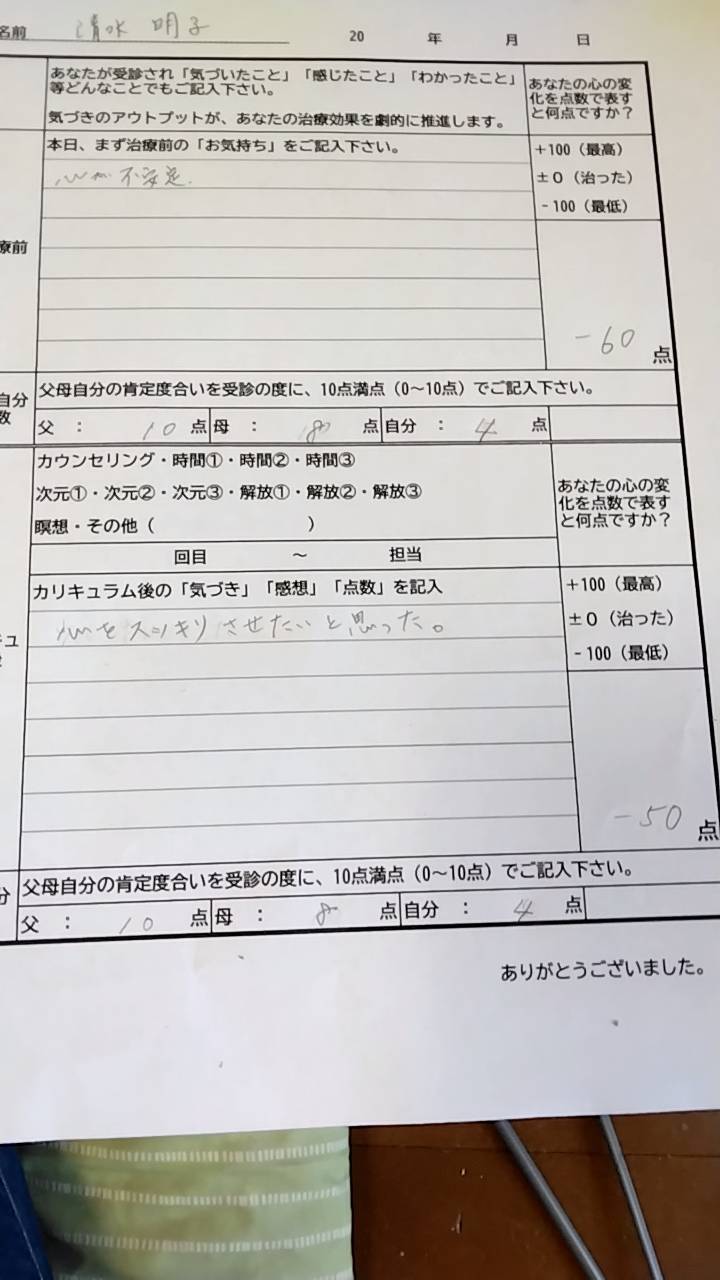 名前 清水 明子 20 年 月 日
あなたが受診され「気づいたこと」「感じたこと」「わかったこと」
等どんなことでもご記入下さい。
気づきのアウトプットが、あなたの治療効果を劇的に推進します。
あなたの心の変
化を点数で表す
と何点ですか?
療前
本日、まず治療前の「お気持ち」をご記入下さい。
心が不安定.
+100(最高)
±0(治った)
-100(最低)
-60 点
自分
数
父母自分の肯定度合いを受診の度に、10点満点(0〜10点)でご記入下さい。
父 : 10 点 母 : 8 点 自分 : 4 点
カウンセリング・時間①・時間②・時間③
次元①・次元②・次元③・解放①・解放②・解放③
瞑想・その他( )
回目 〜 担当
あなたの心の変
化を点数で表す
と何点ですか?
キュ
カリキュラム後の「気づき」「感想」「点数」を記入
心をスッキリさせたいと思った。
+100(最高)
±0(治った)
-100(最低)
-50 点
分
父母自分の肯定度合いを受診の度に、10点満点(0〜10点)でご記入下さい。
父 : 10 点 母 : 8 点 自分 : 4 点
ありがとうございました。